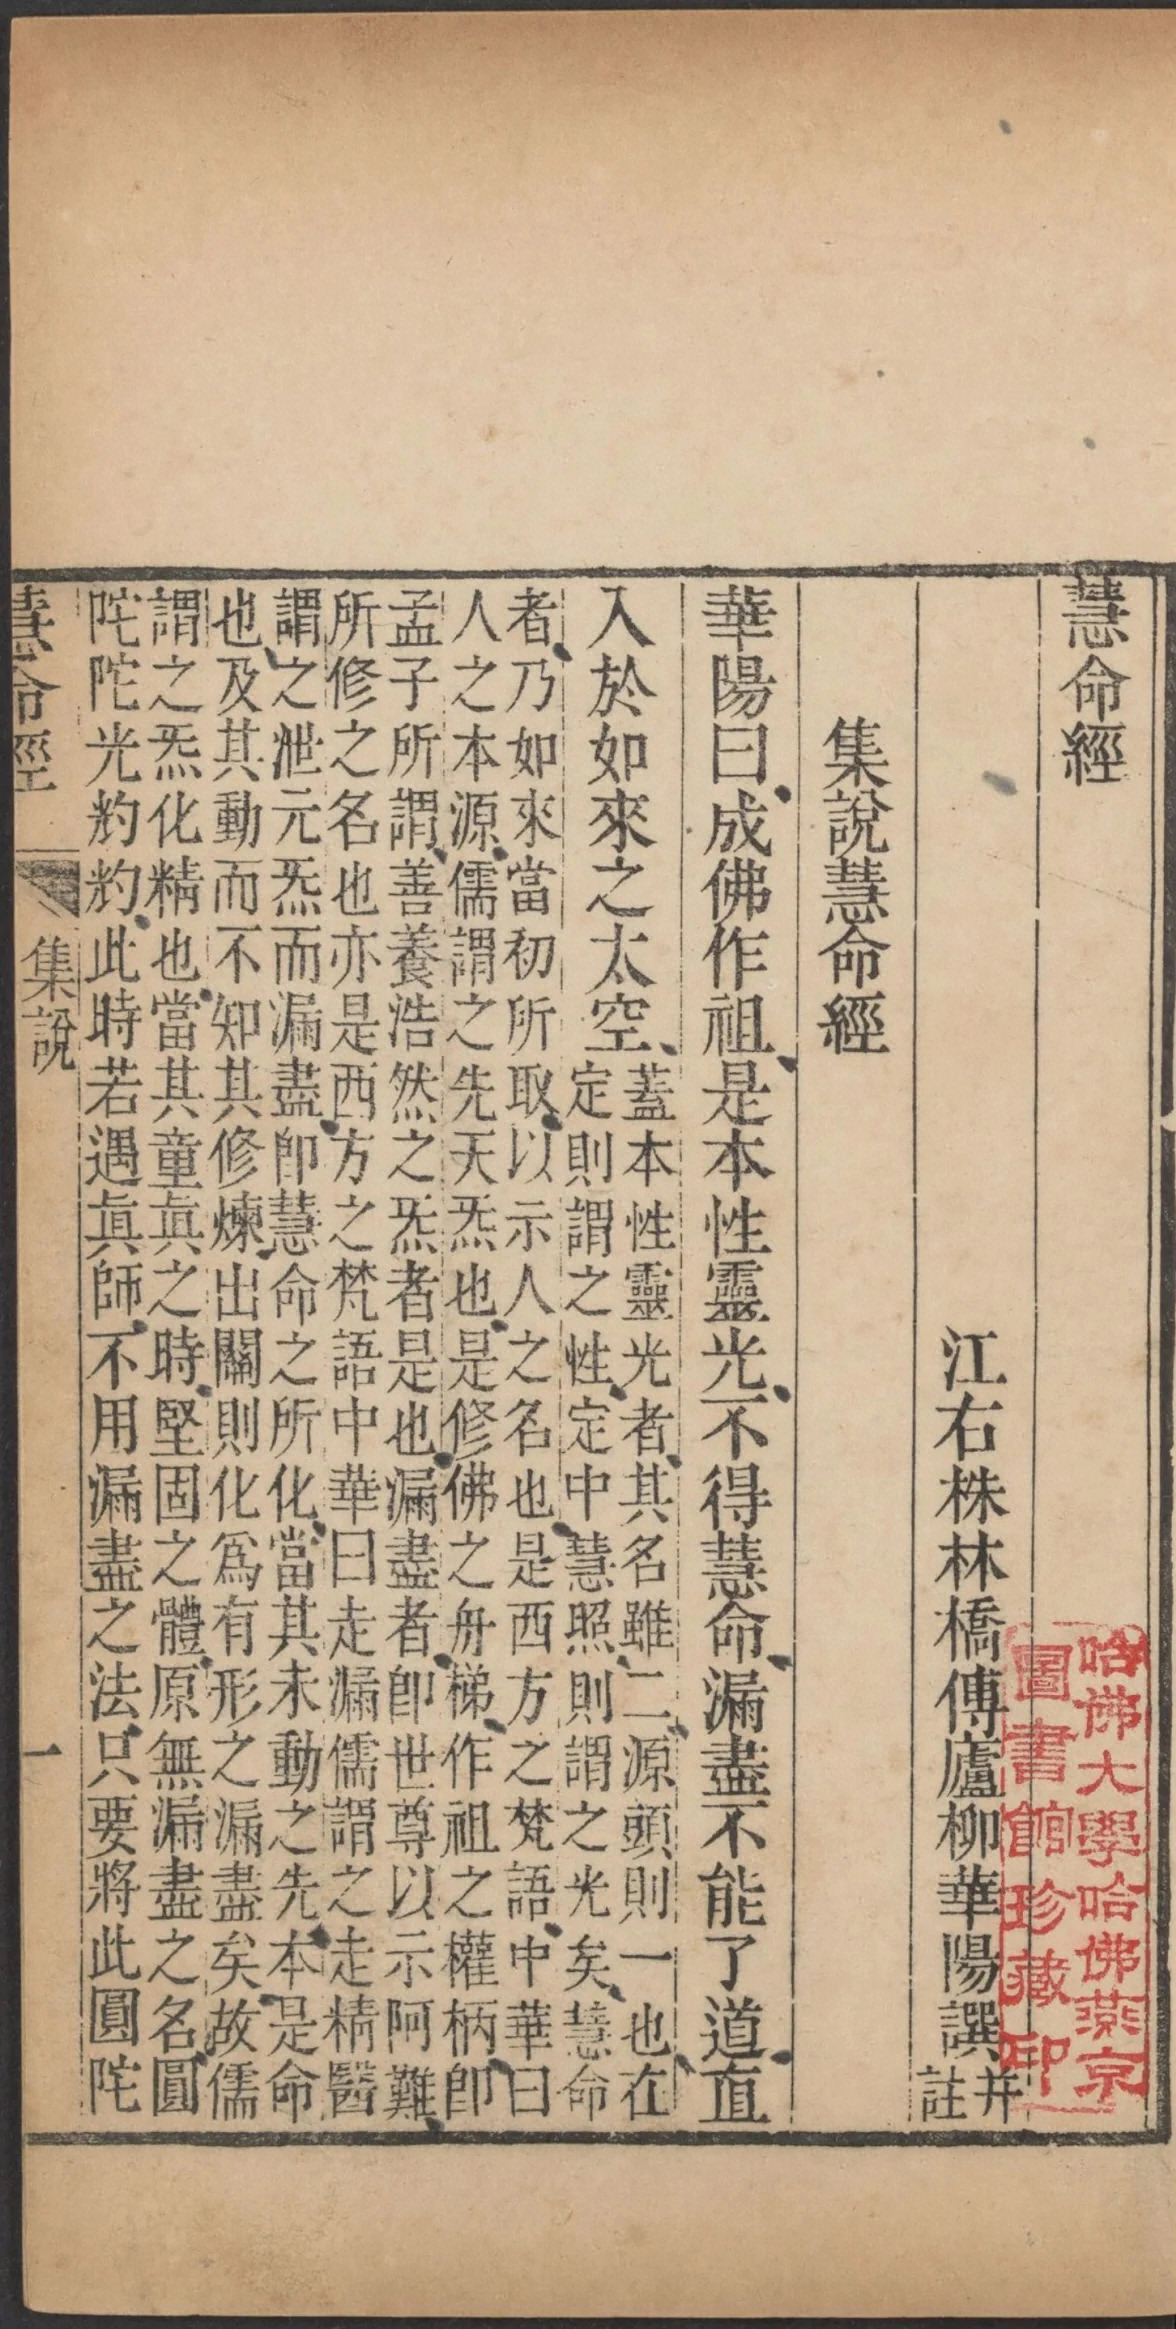 慧命經
江右株林橋傳廬柳華陽譔并註
集說慧命經
華陽曰成佛作祖是本性靈光不得慧命漏盡不能了道直
入於如來之太空
蓋本性靈光者其名雖二源頭則一也在
定則謂之性定中慧照則謂之光矣慧命
者乃如來當初所取以示人之名也是西方之梵語中華曰
人之本源儒謂之先天炁也是修佛之舟梯作祖之權柄卽
孟子所謂善養浩然之炁者是也漏盡者卽世尊以示阿難
所修之名也亦是西方之梵語中華曰走漏儒謂之走精醫
謂之泄元炁而漏盡卽慧命之所化當其未動之先本是命
也及其動而不知其修煉出關則化爲有形之漏盡矣故儒
謂之炁化精也當其童眞之時堅固之體原無漏盡之名圓
陀陀光灼灼此時若遇眞師不用漏盡之法只要將此圓陀
慧命經
集說
一
哈佛大學哈佛燕京
圖書館珍藏印